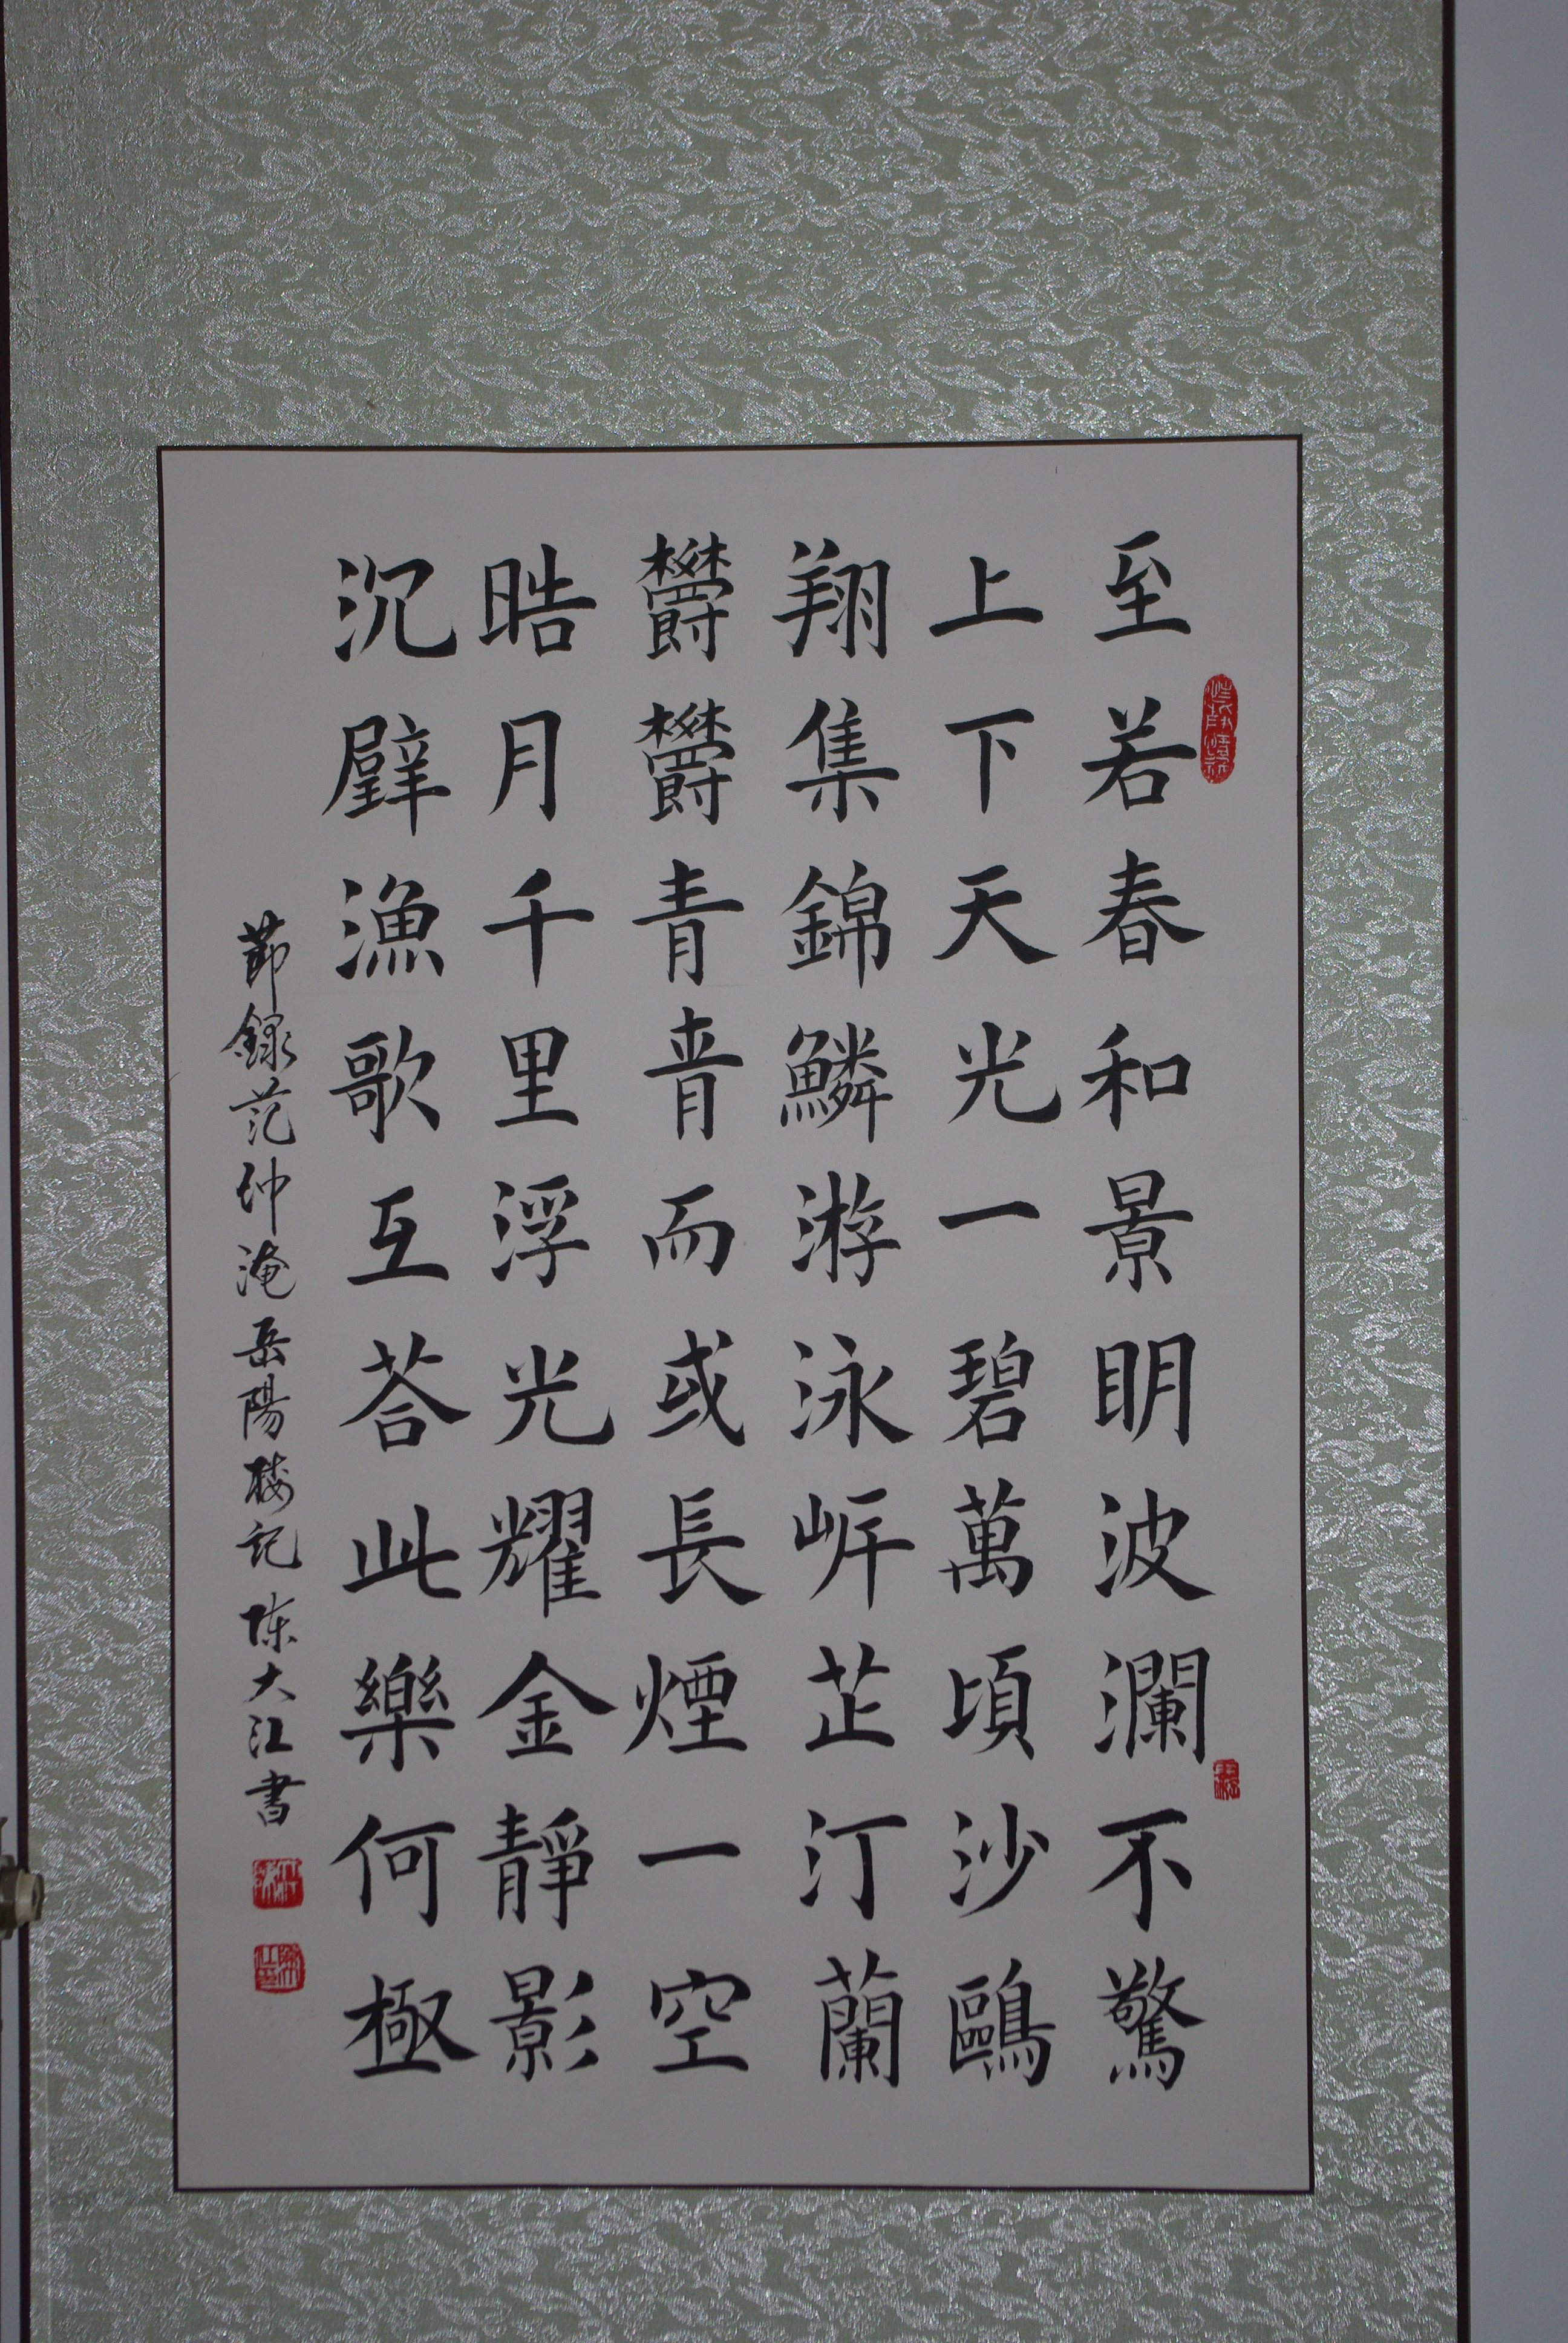 至若春和景眀波瀾不驚
上下天光一碧萬頃沙鷗
翔集錦鱗游泳岸芷汀蘭
欎欎青青而或長煙一空
晧月千里浮光耀金靜影
沉璧漁歌互荅此樂何極
節錄范仲淹岳陽楼記 陈大江書